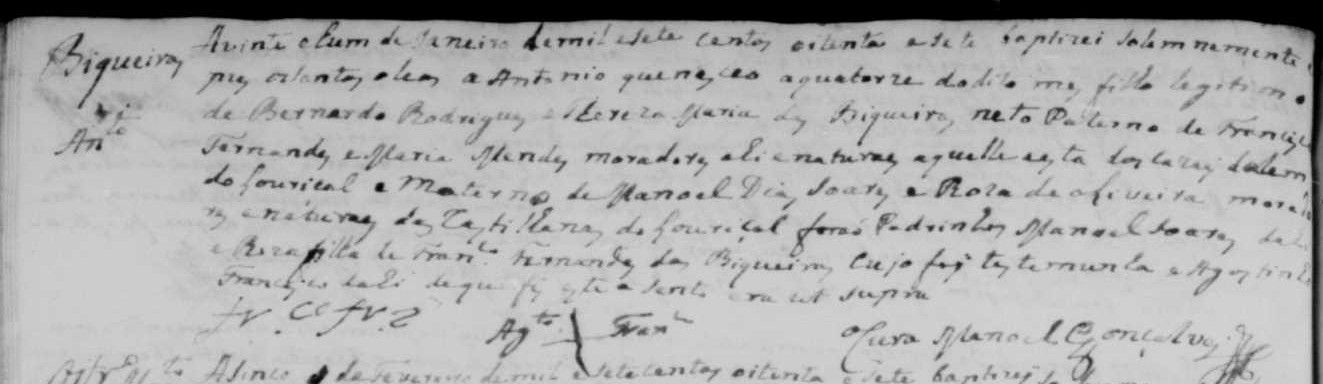 Biqueiras
Anto
A vinte e hum de Janeiro de mil e sete centos oitenta e sete baptizei solemnemente e
pus os santos oleos a Antonio que nasceo a quatorze do dito mes filho legitimo
de Bernardo Rodrigues e Thereza Maria das Biqueiras neto Paterno de Francisco
Fernandes e Maria Mendes moradores e li e naturaes aquelle e esta dos
do Louriçal e Materno de Manoel Dias Soares e Roza de Oliveira morado
res e naturaes das Castilhanas do Louriçal foraõ Padrinhos Manoel Soares
e Roza filha de Franco Fernandes das Biqueiras cujo fez testemunha e Agostinho
Francisco dali de que fiz este asento era ut supra
Agto Franco
O Cura Manoel Gonçalves
A sinco de Fevereiro de mil e setecentos oitenta e sete baptizei